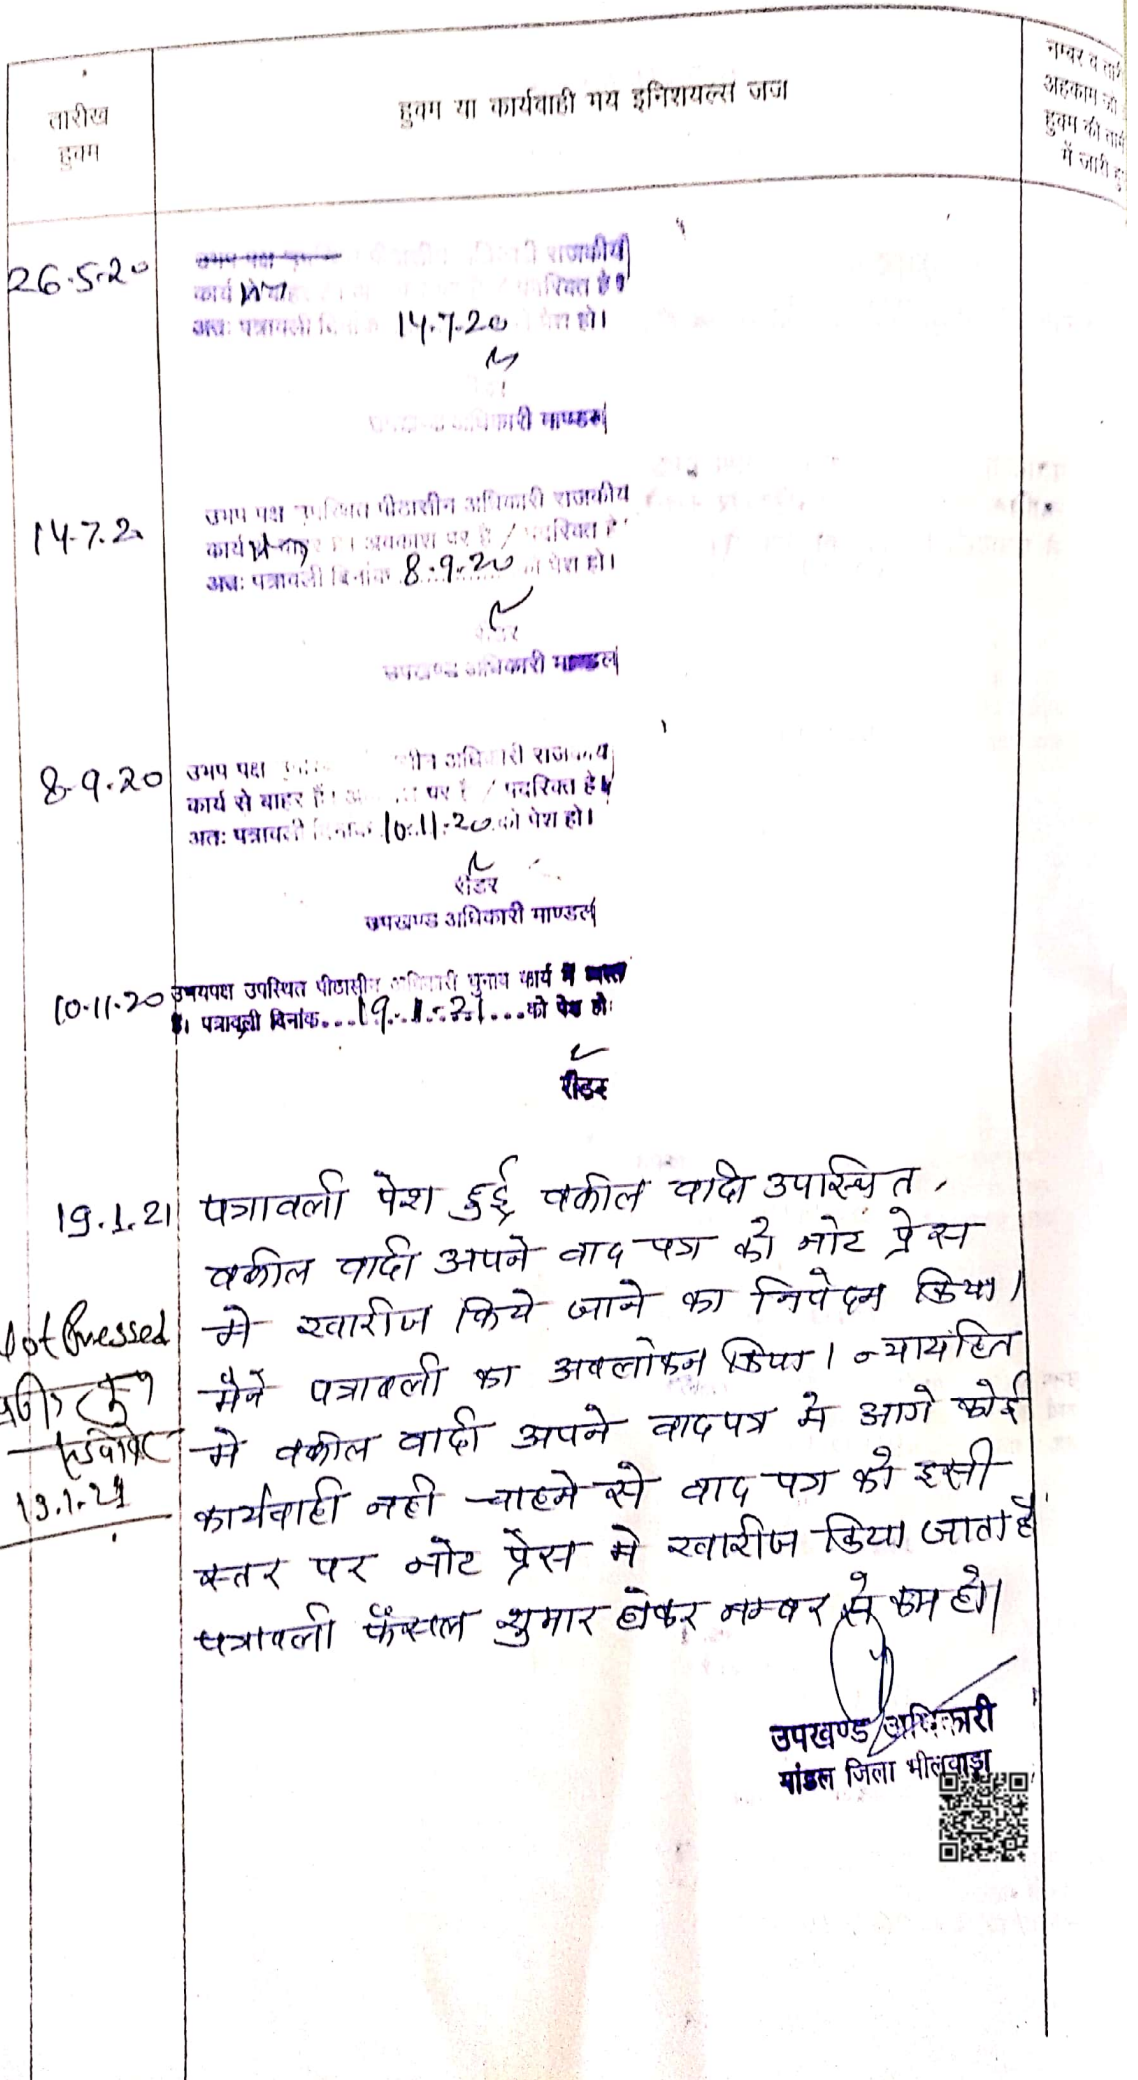 तारीख
हुक्म
हुक्म या कार्यवाही मय इनिशियल्स जज
नम्बर व
अहकाम जो
हुक्म की
में जारी
26.5.20
राजकीय
कार्य
अतः पत्रावली 14.7.20 पेश हो।
अधिकारी माण्डल
14.7.2
उभय पक्ष उपस्थित पीठासीन अधिकारी राजकीय
कार्य से बाहर है। अवकाश पर है / पदरिक्त है
अतः पत्रावली दिनांक 8.9.20 को पेश हो।
रीडर
उपखण्ड अधिकारी माण्डल
8.9.20
उभय पक्ष अधिकारी राजकीय
कार्य से बाहर है। पर है / पदरिक्त है।
अतः पत्रावली दिनांक 10.11.20 को पेश हो।
रीडर
उपखण्ड अधिकारी माण्डल
10.11.20
उभयपक्ष उपस्थित पीठासीन अधिकारी चुनाव कार्य में व्यस्त
है। पत्रावली दिनांक...19.1.21...को पेश हो।
रीडर
19.1.21 पत्रावली पेश हुई वकील वादी उपस्थित,
वकील वादी अपने वाद पत्र को नोट प्रेस
मे खारीज किये जाने का निवेदन किया।
मैने पत्रावली का अवलोकन किया। न्यायहित
मे वकील वादी अपने वादपत्र मे आगे कोई
कार्यवाही नही चाहने से वाद पत्र को इसी
स्तर पर नोट प्रेस मे खारीज किया जाता है
पत्रावली फैसल शुमार होकर नम्बर से कम हो।
Not Pressed
एडवोकेट
19.1.21
उपखण्ड अधिकारी
मांडल जिला भीलवाड़ा